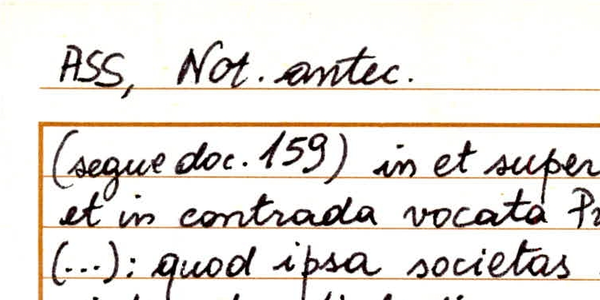 ASS, Not. antec.
(segue doc. 159) in et super
et in contrada vocata
(...): quod ipsa societas